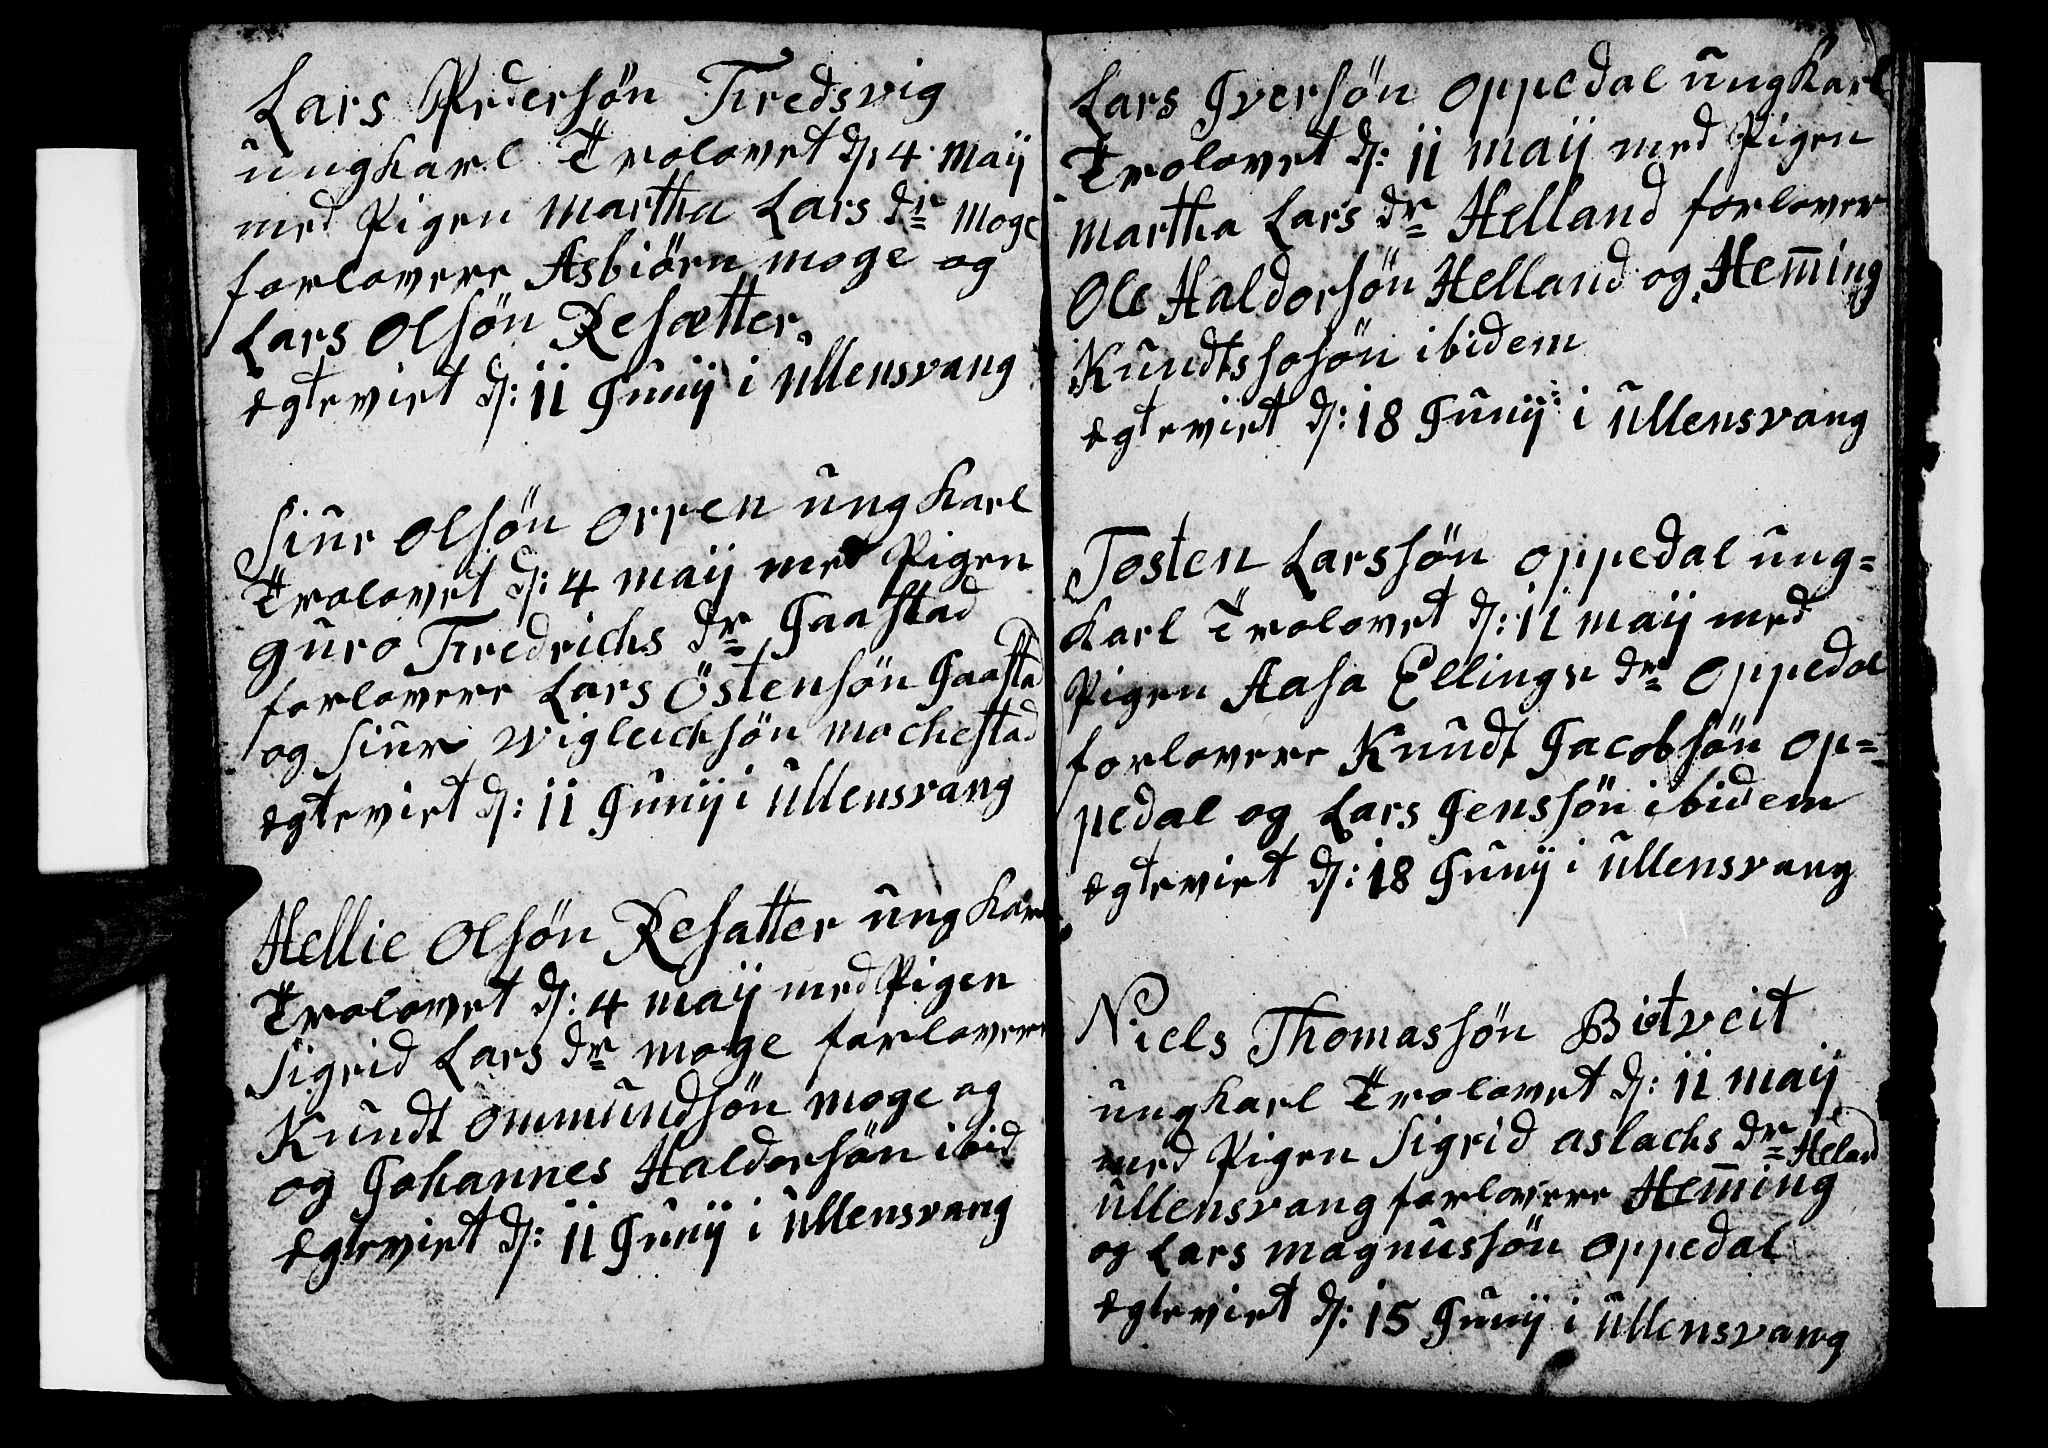 Lars Pedersön Tredsvig
ungkarl Trolovet d: 4 Maij
med Pigen Martha Lars dr Moge
forlovere Asbiörn moge og
Lars Olsön Resætter.
Egtevict d: 11 Junij i Ullensvang
Siur Olsön Orren ung karl
Trolovet d: 4 maij med Pigen
Guro Fredrichs dr Jaastad
forlovere Lars Östensön Jaasta
og Siur Wigleichsön mochestad
Egtevict d: 11 Junij i Ullensvang
Hellie Olsön Resatter ung kar
Trolovet d: 4 maij med Pigen
Sigrid Lars dr moge forlovere
Kundt Ommundsön moge og
og Johannes Haldorsön ibid
Egtevict d: 11 Junij i Ullensvang
Lars Iversön Oppedal ungkarl
Trolovet d: 11 maij med Pigen
Martha Lars dr Helland forlover
Ole Haldorsön Helland og Hem̅ing
Kundtssosön ibidem
Egtevict d: 18 Junij i Ullensvang
Tosten Larssön Oppedal ung=
karl Trolovet d: 11 maij med
Pigen Aasa Ellings dr Oppedal
forlovere Knudt Jacobsön Op=
pedal og Lars Jenssön ibidem
Egtevict d: 18 Junij i Ullensvang
Niels Thomassön Bitveit
ungkarl Trolovet d: 11 maij
med Pigen Sigrid aslachs dr Heland
Ullensvang forlovere Hem̅ing
og Lars magnussön Oppedal
Egtevict d: 15 Junij i Ullensvang